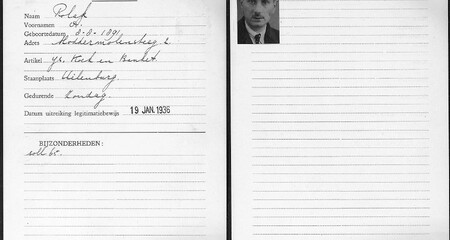 Naam Polak
Voornamen A.
Geboortedatum 3-3-1891
Adres Moddermolensteeg 2
Artikel IJs. Koek en Banket.
Staanplaats Uilenburg.
Gedurende Zondag.
Datum uitreiking legitimatiebewijs 19 JAN. 1936
BIJZONDERHEDEN: